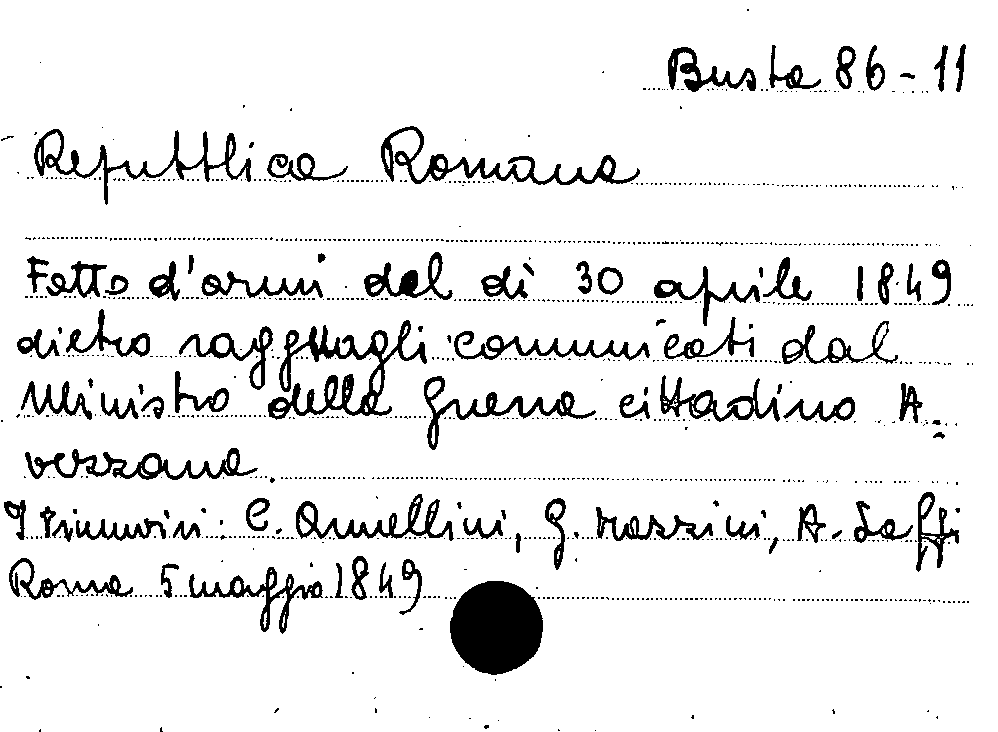 Busta 86-11
Repubblica Romana
Fatto d'armi del dì 30 aprile 1849
dietro ragguagli comunicati dal
Ministro della Guerra cittadino A.
vezzana.
I Triumviri: C. Armellini, G. Mazzini, A. Saffi
Roma 5 maggio 1849